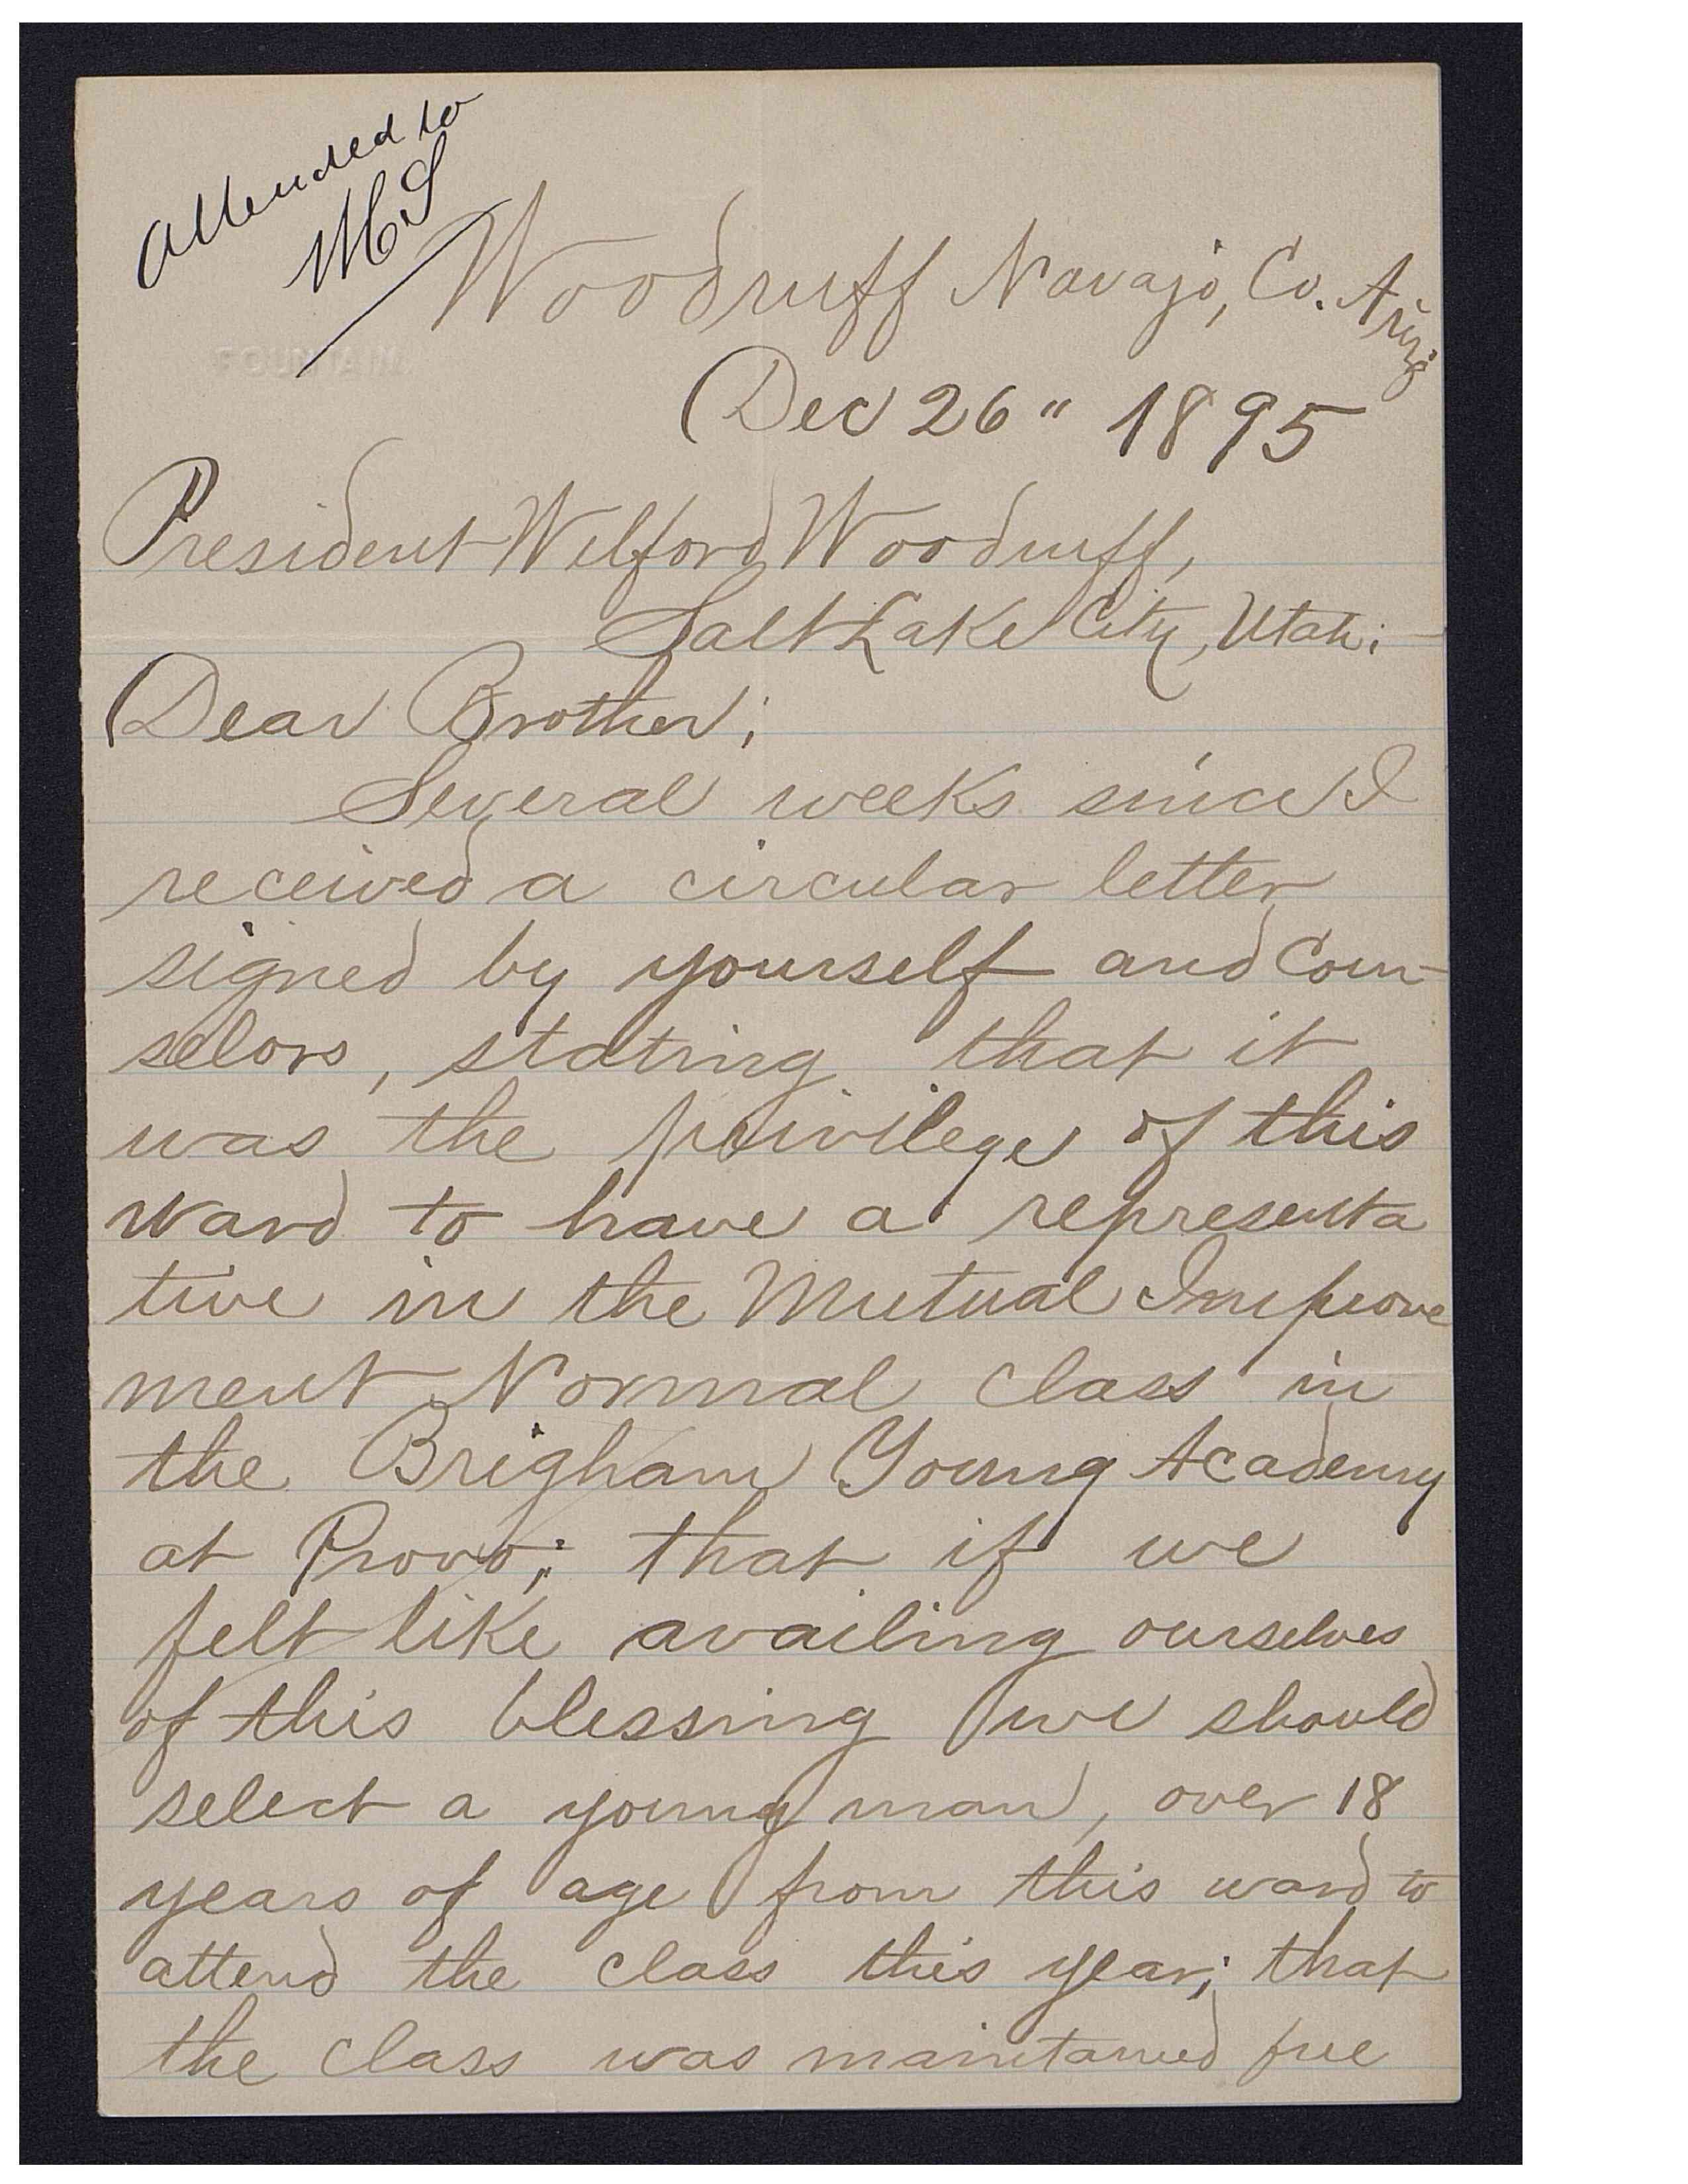 Attended to
MS
FOUNTAIN
Woodruff Navajo, Co. Ariz
Dec 26" 1895
President Wilford Woodruff,
Salt Lake City, Utah;
Dear Brother;
Several weeks since I
received a circular letter
signed by yourself and Coun-
selors, stating that it
was the privilege of this
ward to have a representa
tive in the Mutual Improve
ment Normal class in
the Brigham Young Academy
at Provo; that if we
felt like availing ourselves
of this blessing we should
select a young man, over 18
years of age from this ward to
attend the class this year; that
the class was maintained free